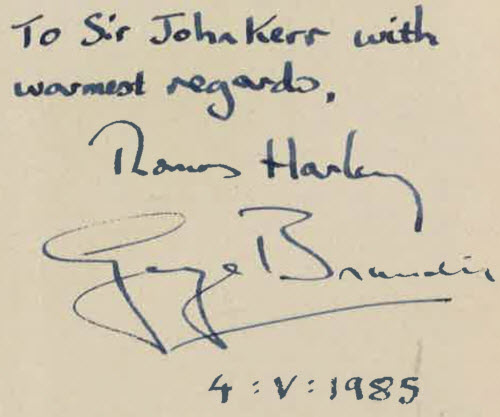 To Sir John Kerr with
warmest regards,
Thomas Harley
George Brandis
4 : V : 1985